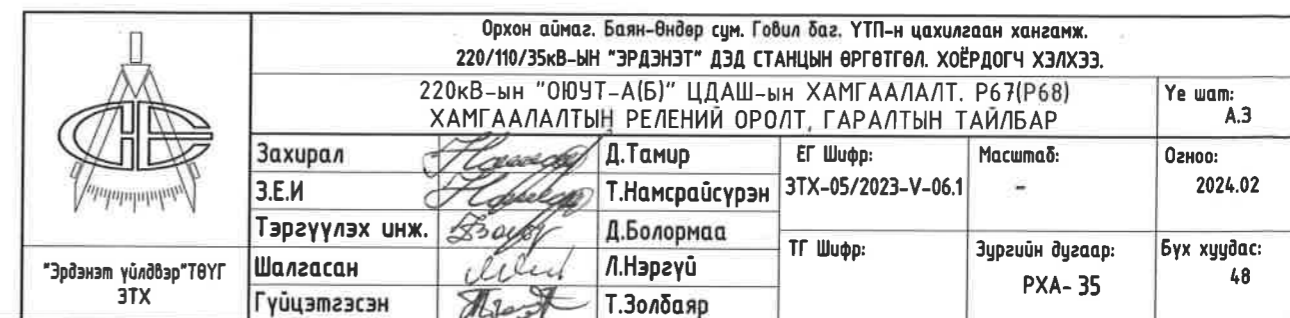 Орхон аймаг. Баян-Өндөр сум. Говил баг. ҮТП-н цахилгаан хангамж.
220/110/35кВ-ЫН "ЭРДЭНЭТ" ДЭД СТАНЦЫН ӨРГӨТГӨЛ. ХОЁРДОГЧ ХЭЛХЭЭ.
220кВ-ын "ОЮУТ-А(Б)" ЦДАШ-ын ХАМГААЛАЛТ. Р67(Р68)
ХАМГААЛАЛТЫН РЕЛЕНИЙ ОРОЛТ, ГАРАЛТЫН ТАЙЛБАР
Үе шат:
А.З
Захирал
Д.Тамир
З.Е.И
Т.Намсрайсүрэн
Тэргүүлэх инж.
Д.Болормаа
Шалгасан
Л.Нэргүй
Гүйцэтгэсэн
Т.Золбаяр
ЕГ Шифр:
ЗТХ-05/2023-V-06.1
Масштаб:
-
Огноо:
2024.02
ТГ Шифр:
Зургийн дугаар:
РХА- 35
Бүх хуудас:
48
"Эрдэнэт үйлдвэр"ТӨҮГ
ЗТХ